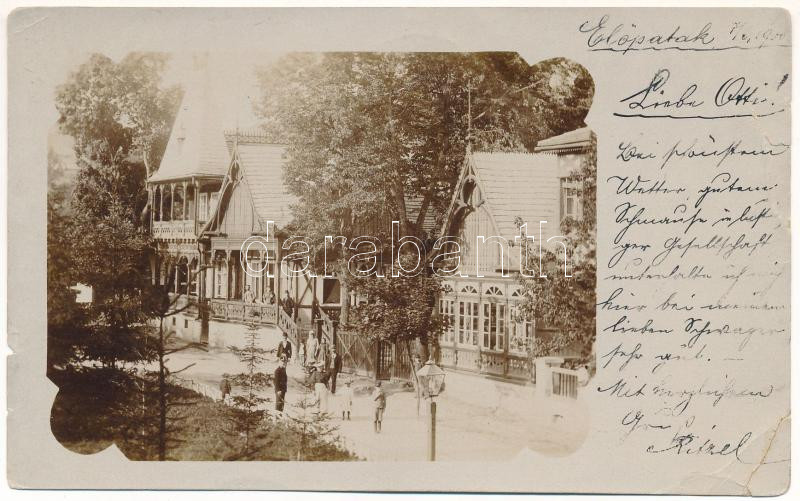 Előpatak
Liebe Otti!
Bei schönstem
Wetter, gutem
Schmause u. lusti
ger Gesellschaft
unterhalte ich mich
hier bei meinem
lieben Schwager
sehr gut. –
Mit herzlichem
Ritzel
darabanth.com